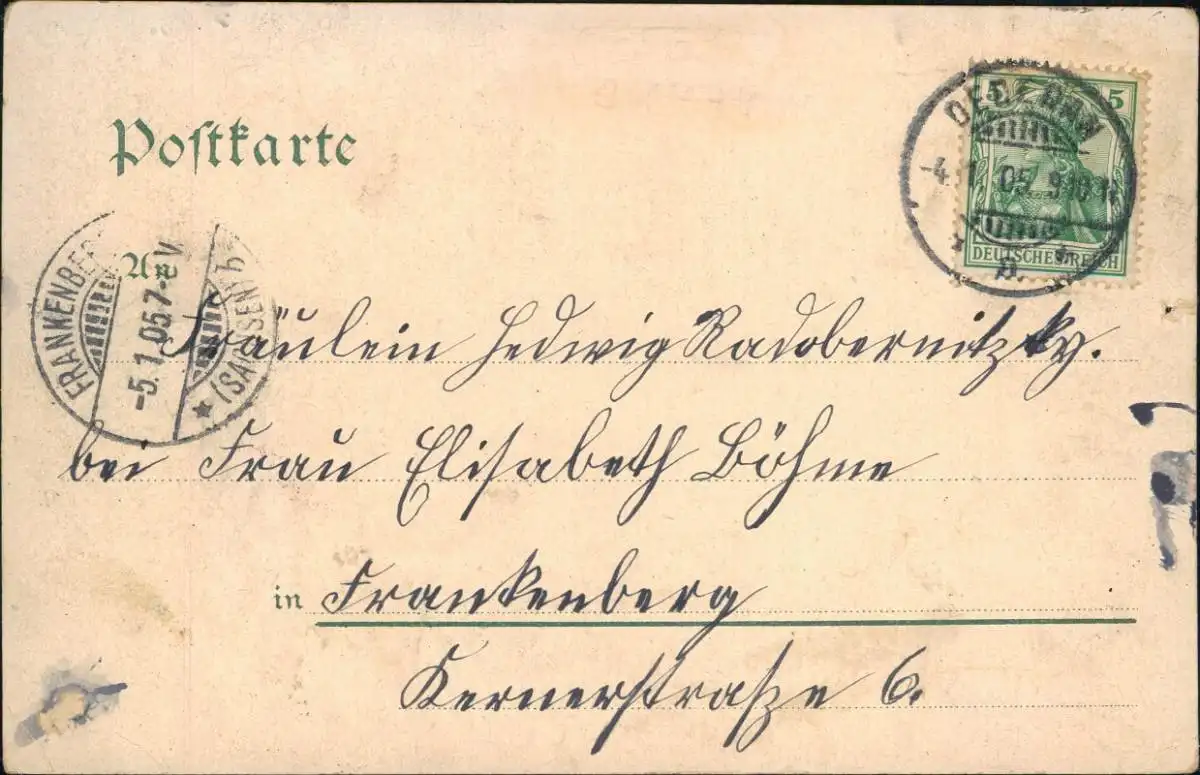 Postkarte
5 5
OEDERAN
-4. 1 05. 9-10 V.
DEUTSCHES REICH
FRANKENBERG
(SACHSEN) b
-5. 1. 05. 7- V
An
Fräulein Hedwig Radobernitzky.
bei Frau Elisabeth Böhme
in Frankenberg
Kernerstraße 6.